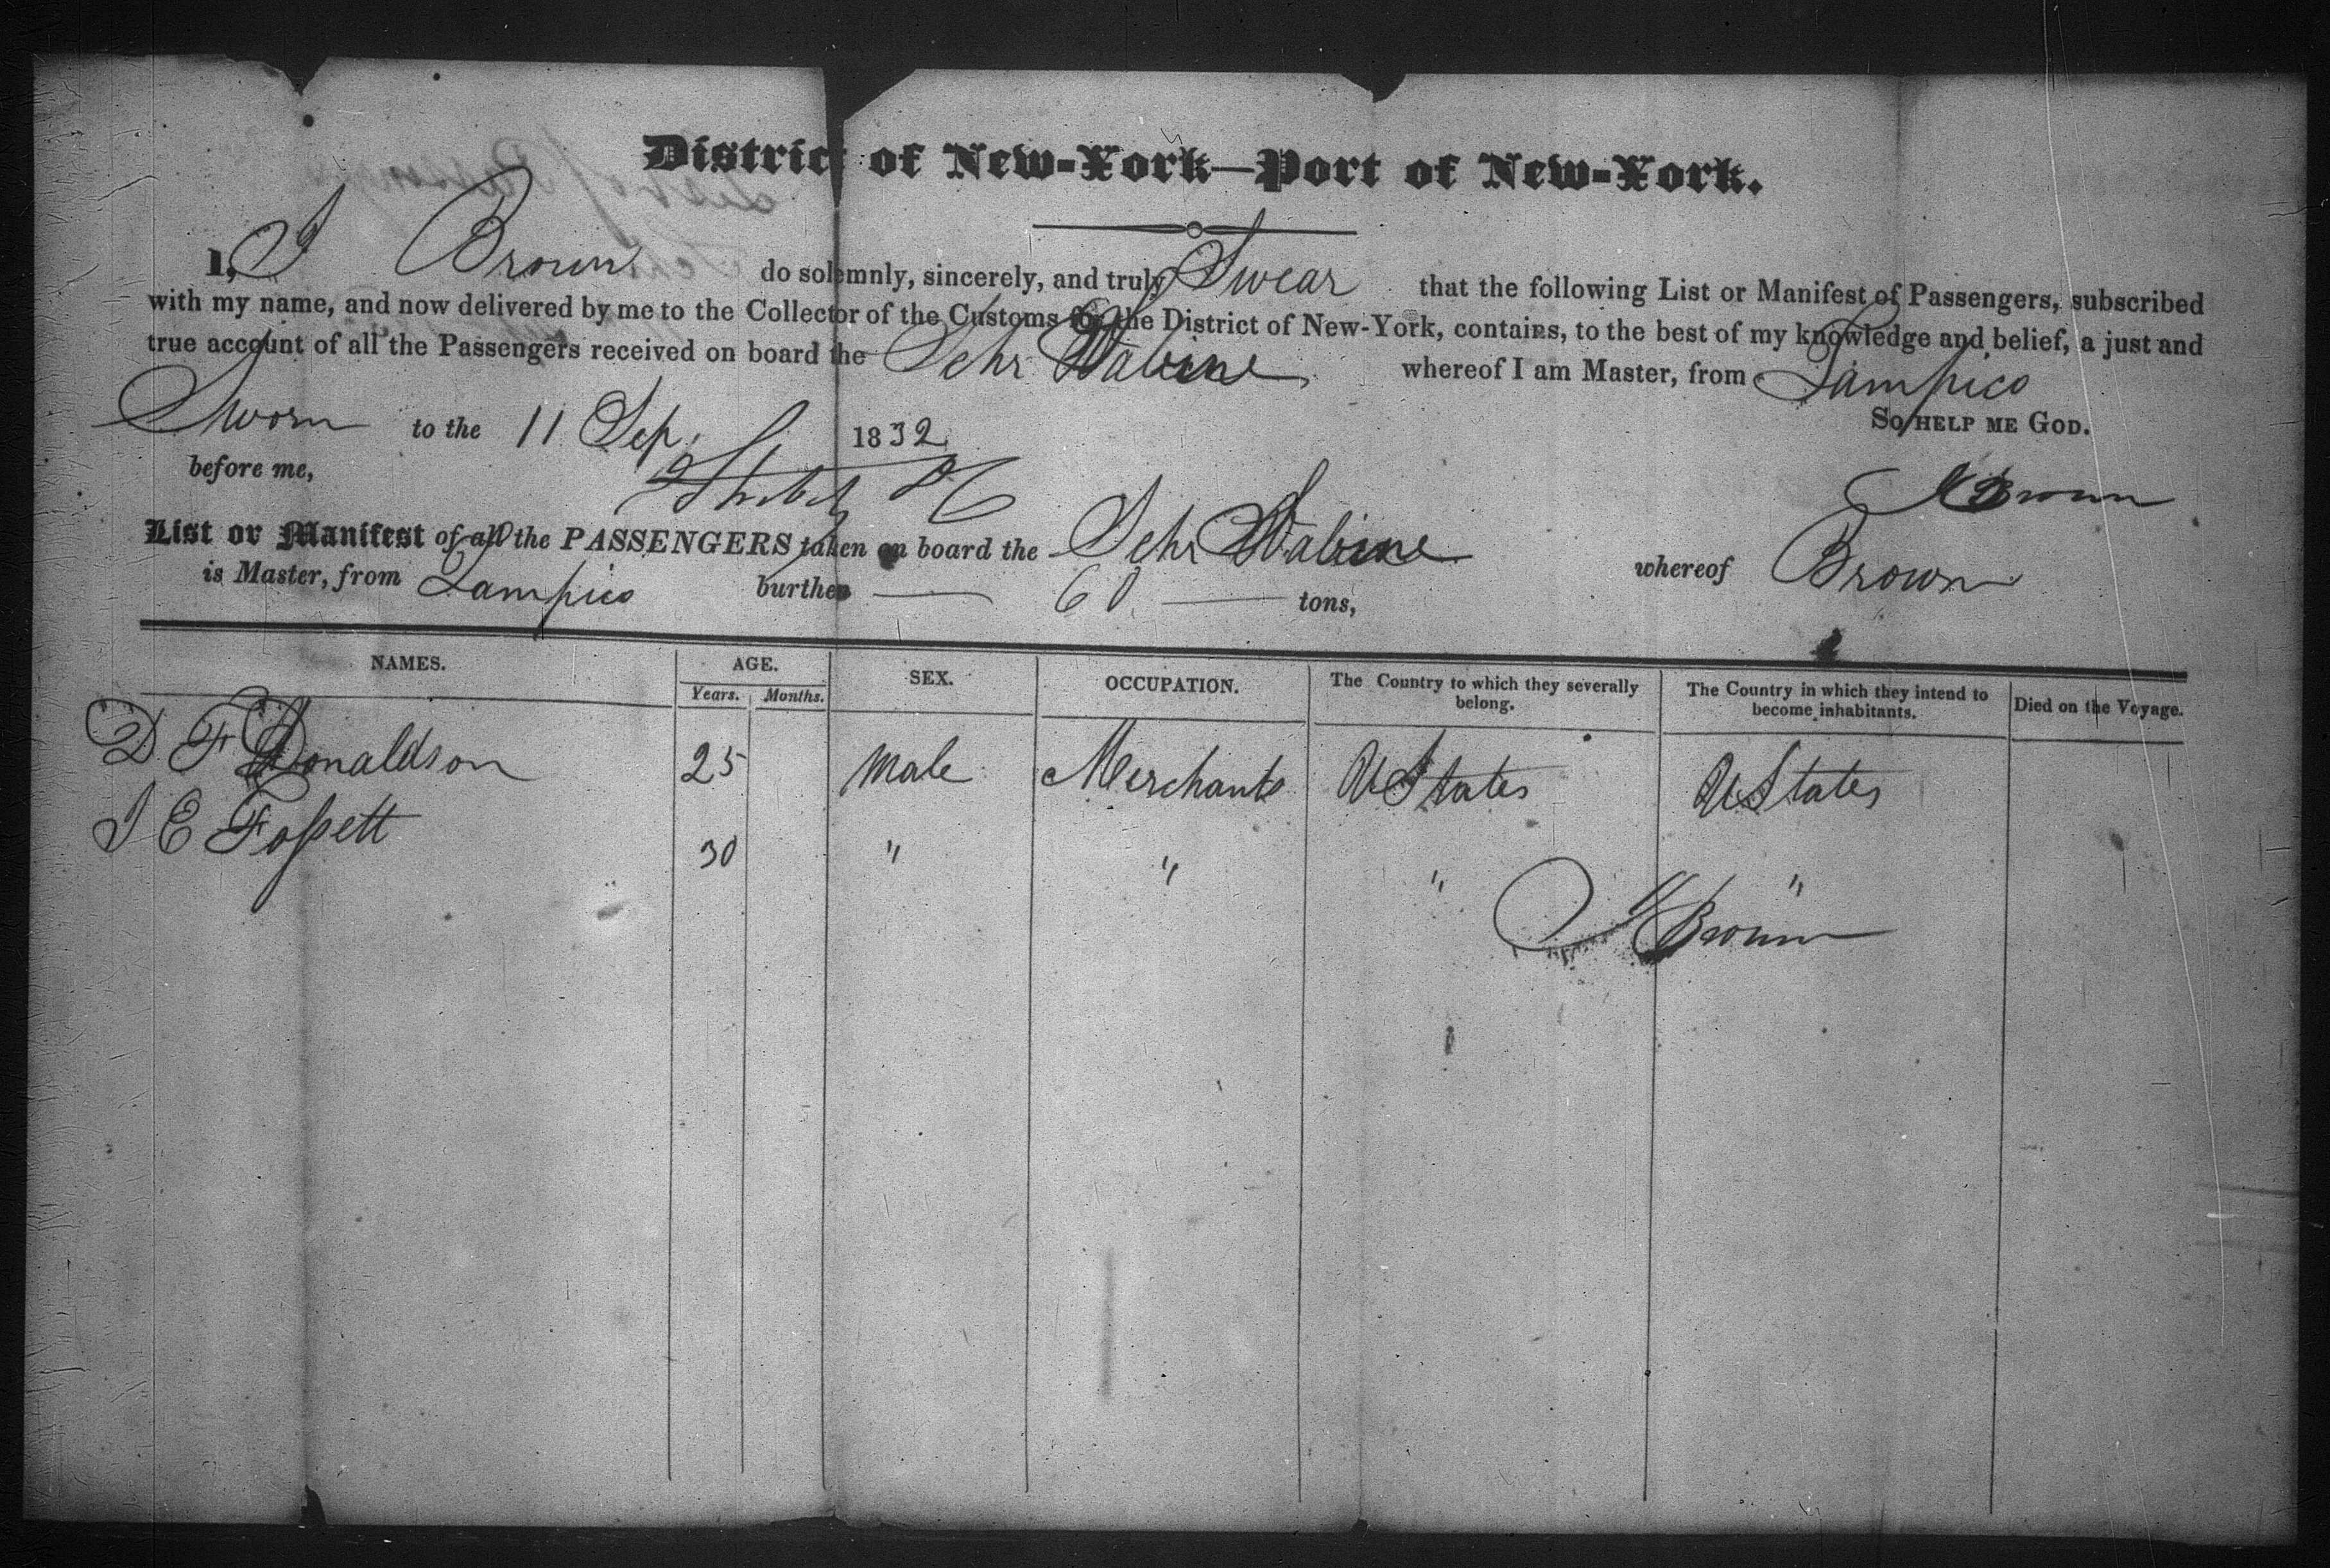 District of New-York—Port of New-York.
I, J Brown do solemnly, sincerely, and truly Swear that the following List or Manifest of Passengers, subscribed
with my name, and now delivered by me to the Collector of the Customs for the District of New-York, contains, to the best of my knowledge and belief, a just and
true account of all the Passengers received on board the Schr Sabine whereof I am Master, from Tampico
So help me God.
Sworn to the 11 Sep. 1832
before me,
Brown
List or Manifest of all the PASSENGERS taken on board the Schr Sabine whereof Brown
is Master, from Tampico burthen — 60 — tons,
NAMES. AGE. SEX. OCCUPATION. The Country to which they severally belong. The Country in which they intend to become inhabitants. Died on the Voyage.
Years. Months.
D F Donaldson 25 Male Merchants UStates UStates
J E Fossett 30 " " " "
Brown